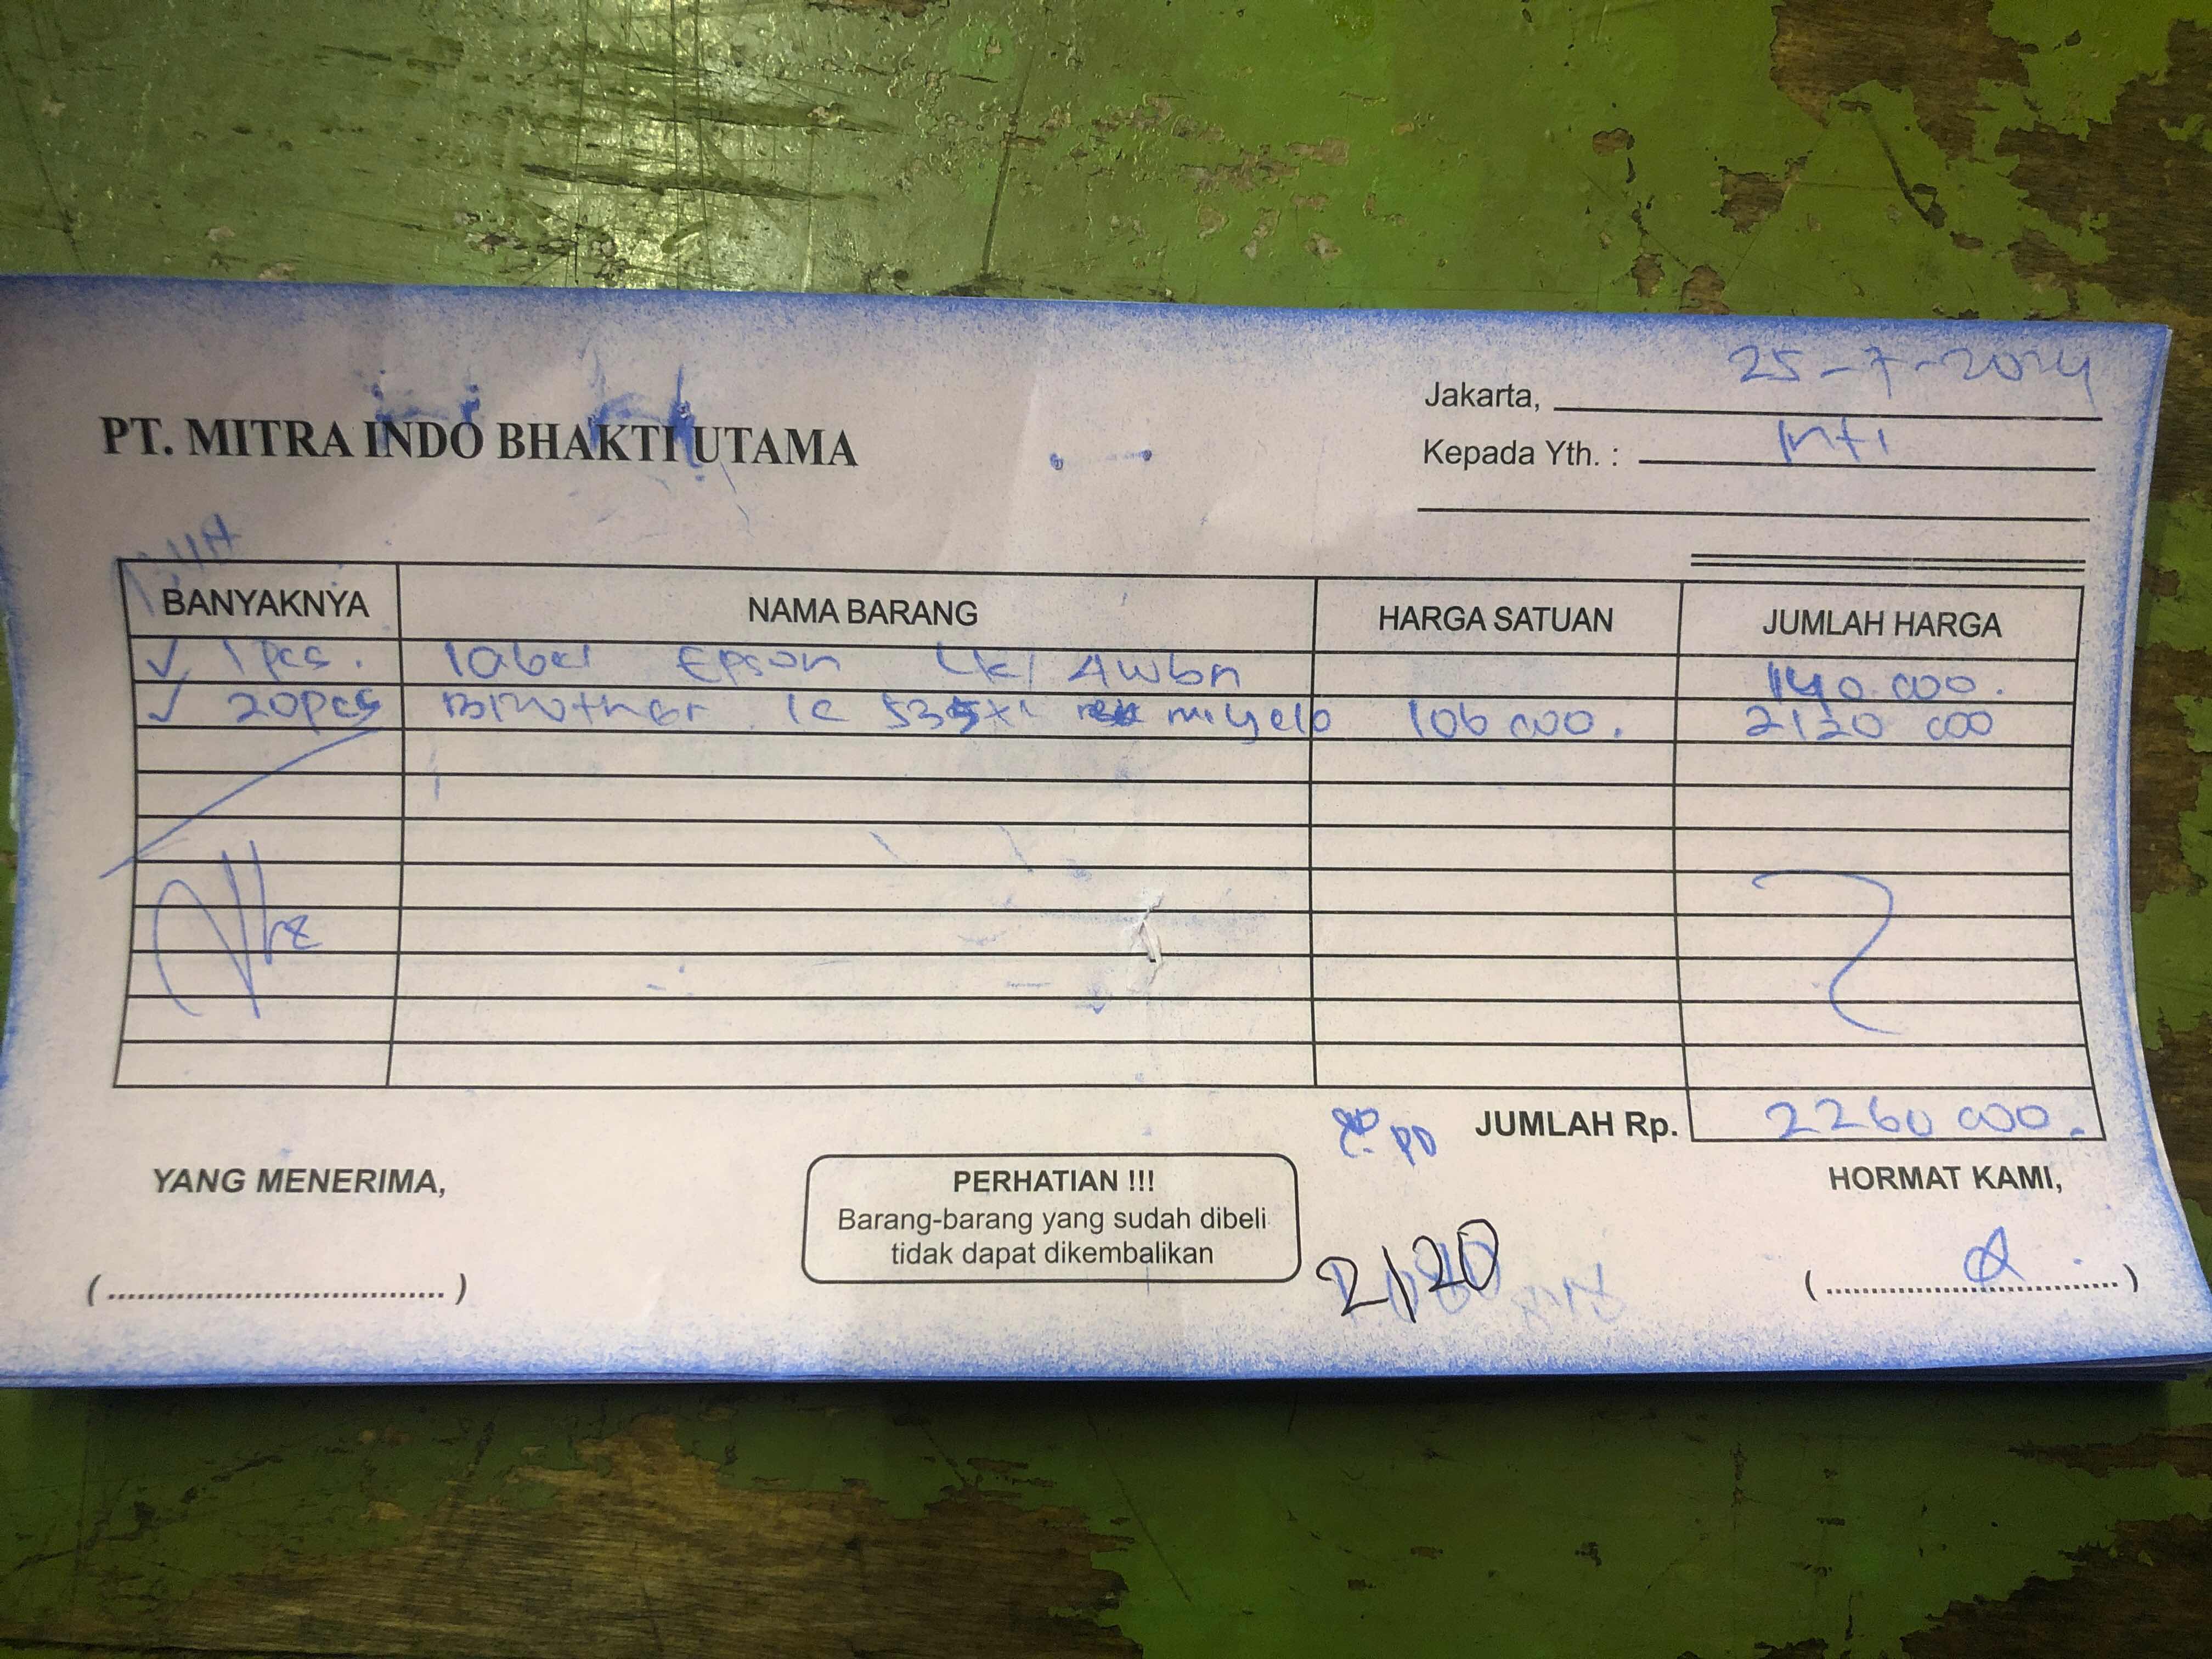 25-7-2024
Jakarta,
PT. MITRA INDO BHAKTI UTAMA
Kepada Yth. : Inti
BANYAKNYA NAMA BARANG HARGA SATUAN JUMLAH HARGA
✓ 1 pcs. label Epson LK 140.000.
✓ 20 pcs Brother lc 535xl 106 000. 2120 000
JUMLAH Rp. 2260 000.
YANG MENERIMA,
PERHATIAN !!!
HORMAT KAMI,
Barang-barang yang sudah dibeli
tidak dapat dikembalikan
2120
(....................................)
(....................................)